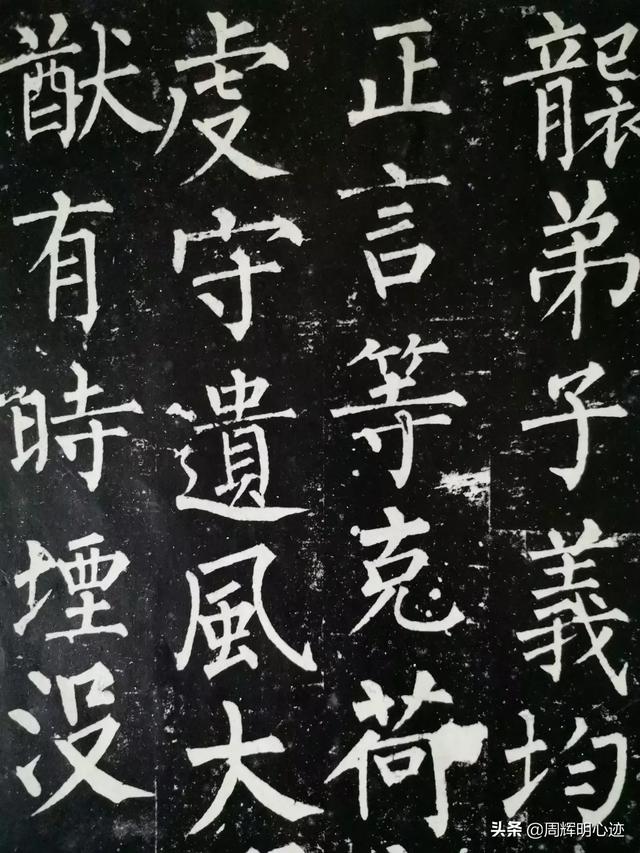 襲弟子義均
正言等克荷
虔守遺風大
猷有時堙没
头条 @周辉明心迹